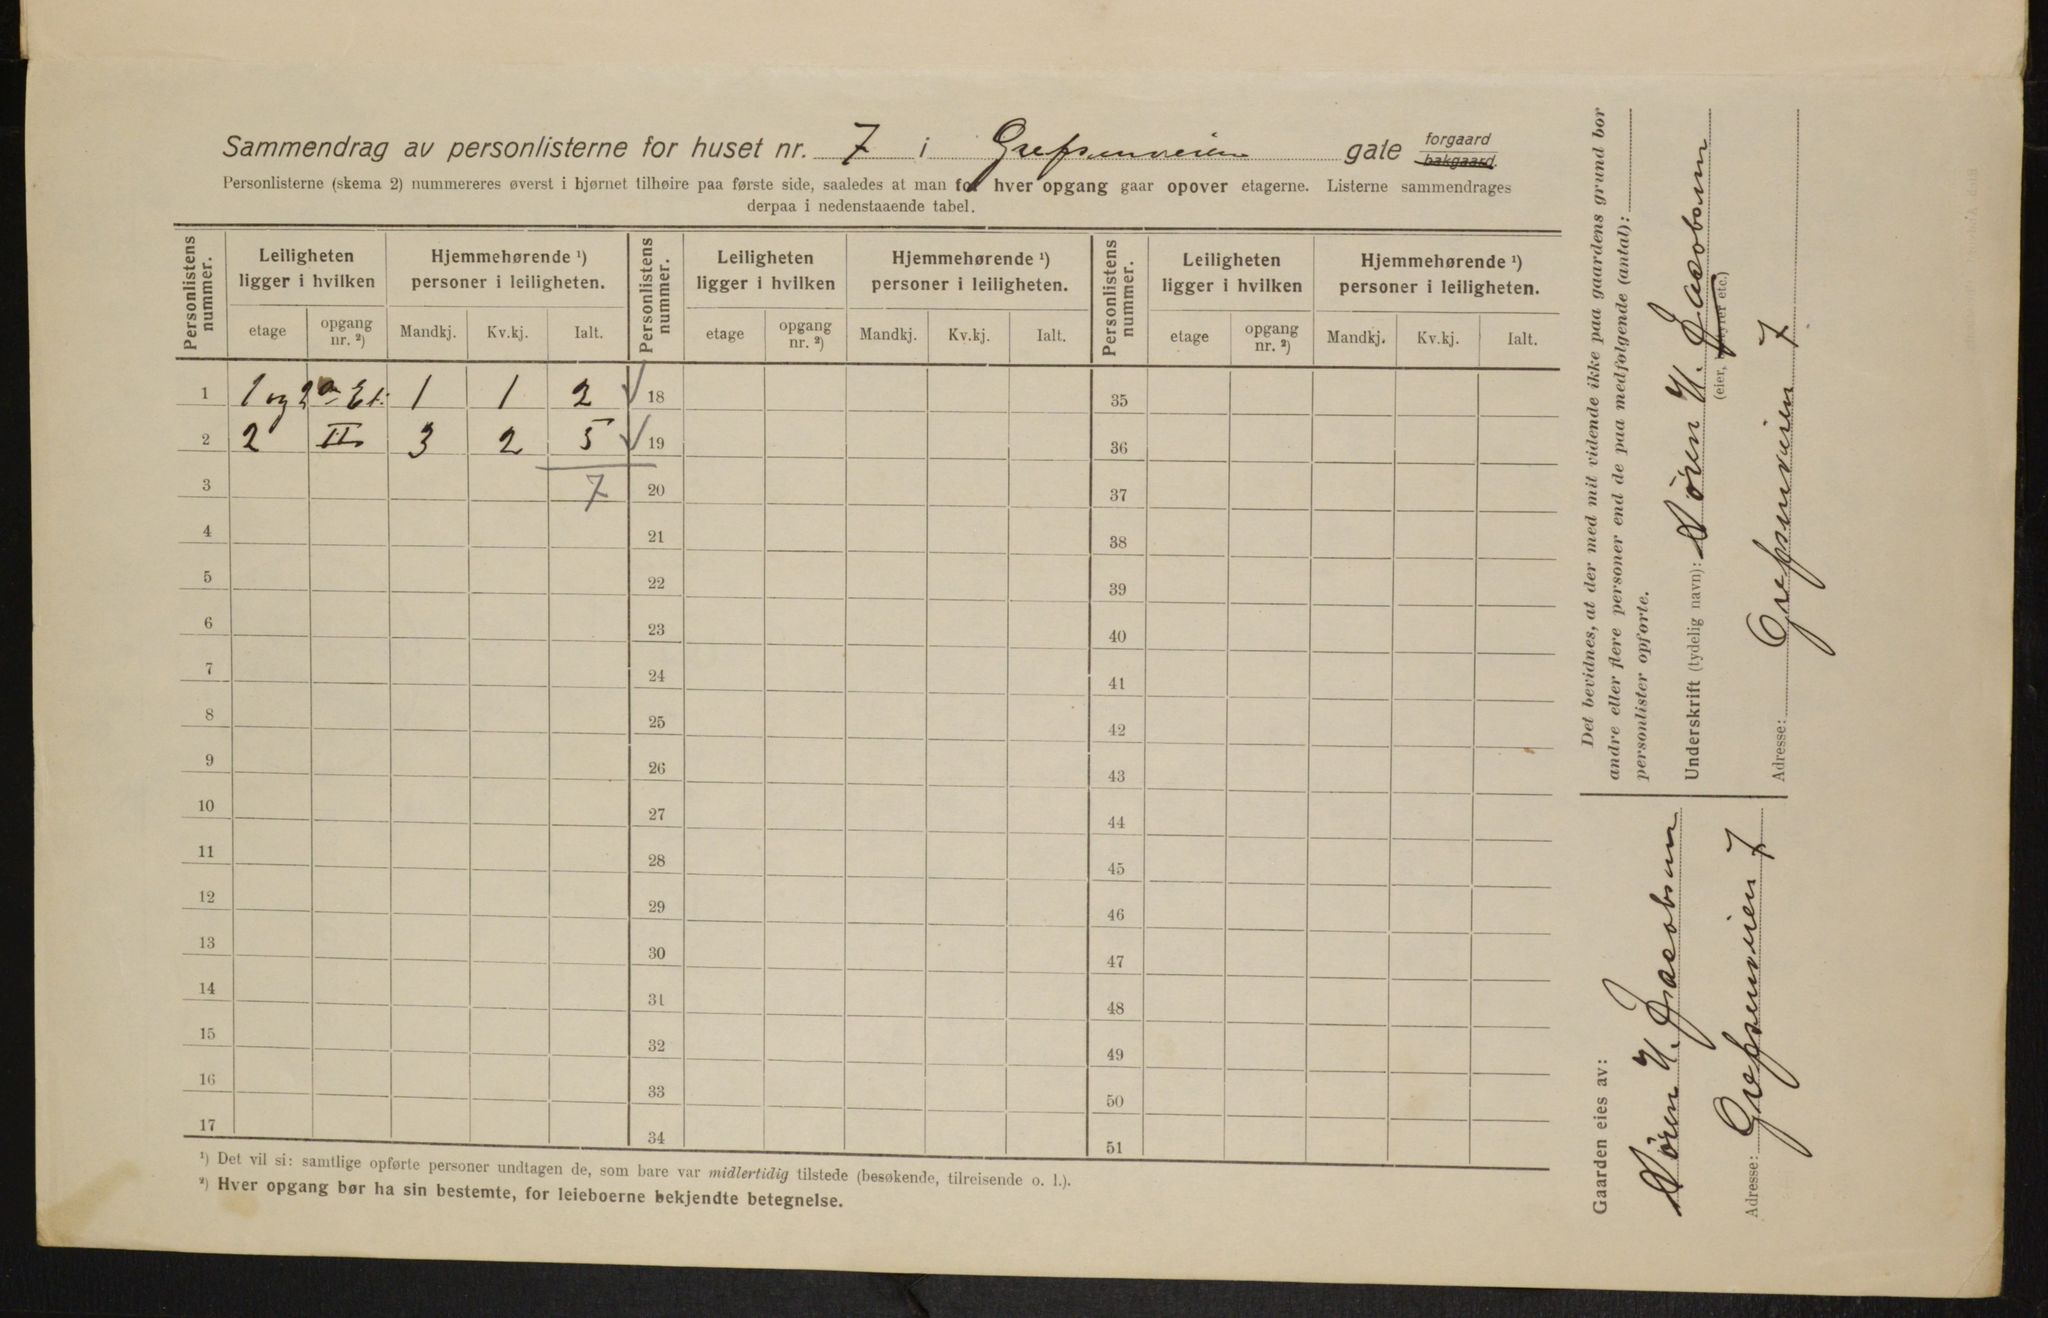 Sammendrag av personlisterne for huset nr. 7 i Grefsenveien gate forgaard bakgaard.
Personlisterne (skema 2) nummereres øverst i hjørnet tilhøire paa første side, saaledes at man for hver opgang gaar opover etagerne. Listerne sammendrages
derpaa i nedenstaaende tabel.
Personlistens nummer. Leiligheten ligger i hvilken Hjemmehørende ¹) personer i leiligheten. Personlistens nummer. Leiligheten ligger i hvilken Hjemmehørende ¹) personer i leiligheten. Personlistens nummer. Leiligheten ligger i hvilken Hjemmehørende ¹) personer i leiligheten.
etage opgang nr. ²) Mandkj. Kv.kj. Ialt. etage opgang nr. ²) Mandkj. Kv.kj. Ialt. etage opgang nr. ²) Mandkj. Kv.kj. Ialt.
1 1 og 2 Et. 1 1 2 18 35
2 2 II 3 2 5 19 36
3 7 20 37
4 21 38
5 22 39
6 23 40
7 24 41
8 25 42
9 26 43
10 27 44
11 28 45
12 29 46
13 30 47
14 31 48
15 32 49
16 33 50
17 34 51
¹) Det vil si: samtlige opførte personer undtagen de, som bare var midlertidig tilstede (besøkende, tilreisende o. l.).
²) Hver opgang bør ha sin bestemte, for leieboerne bekjendte betegnelse.
Det bevidnes, at der med mit vidende ikke paa gaardens grund bor
andre eller flere personer end de paa medfølgende (antal):
personlister opførte.
Underskrift (tydelig navn): Sören H. Jacobsen
(eier, bestyrer etc.)
Adresse: Grefsenveien 7
Gaarden eies av:
Sören H. Jacobsen
Adresse: Grefsenveien 7